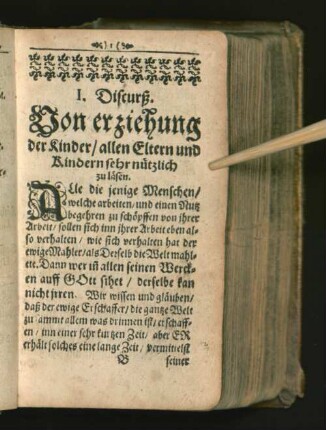 1
I. Discurß.
Von erziehung
der Kinder/ allen Eltern und
Kindern sehr nützlich
zu läsen.
Alle die jenige Menschen/
welche arbeiten/ und einen Nutz
begehren zu schöpffen von jhrer
Arbeit/ sollen sich inn jhrer Arbeit eben al-
so verhalten/ wie sich verhalten hat der
ewige Mahler/ als Derselb die Welt mahl-
ete. Dann wer in̄ allen seinen Werck-
en auff GOtt sihet/ derselbe kan
nicht jrren. Wir wissen und glauben/
daß der ewige Erschaffer/ die gantze Welt
zu sammt allem was drinnen ist/ erschaff-
en/ inn einer sehr kurtzen Zeit/ aber ER
erhält solches eine lange Zeit/ vermittelst
B seiner